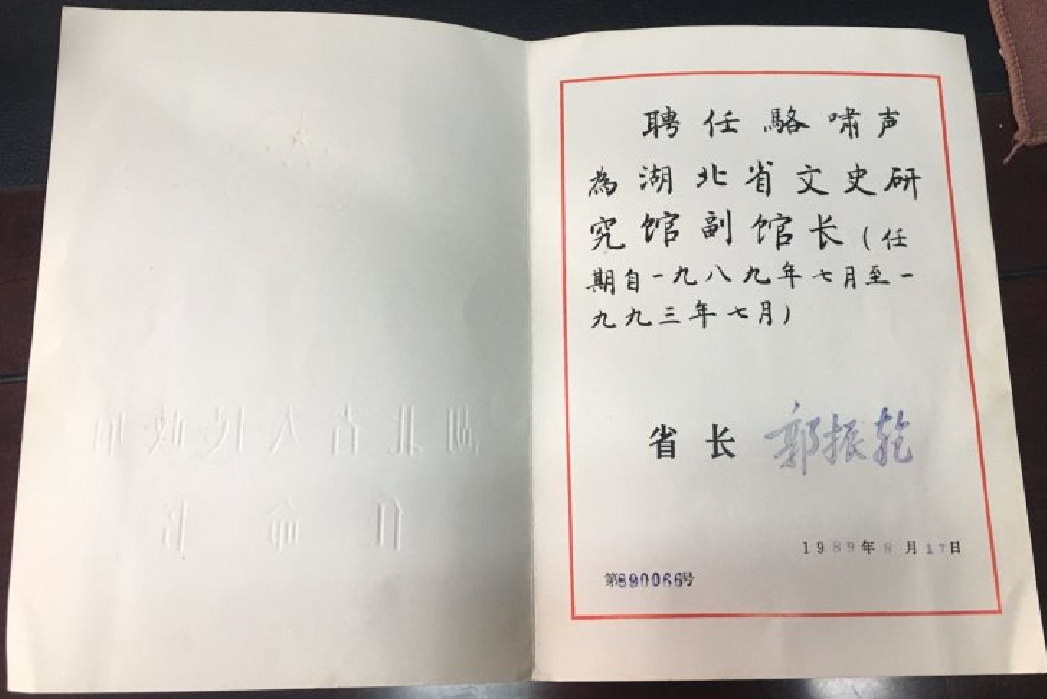 湖北省人民政府
任命书
聘任駱啸声
為湖北省文史研
究馆副馆长(任
期自一九八九年七月至一
九九三年七月)
省长 郭振乾
1989年8月17日
第890066号